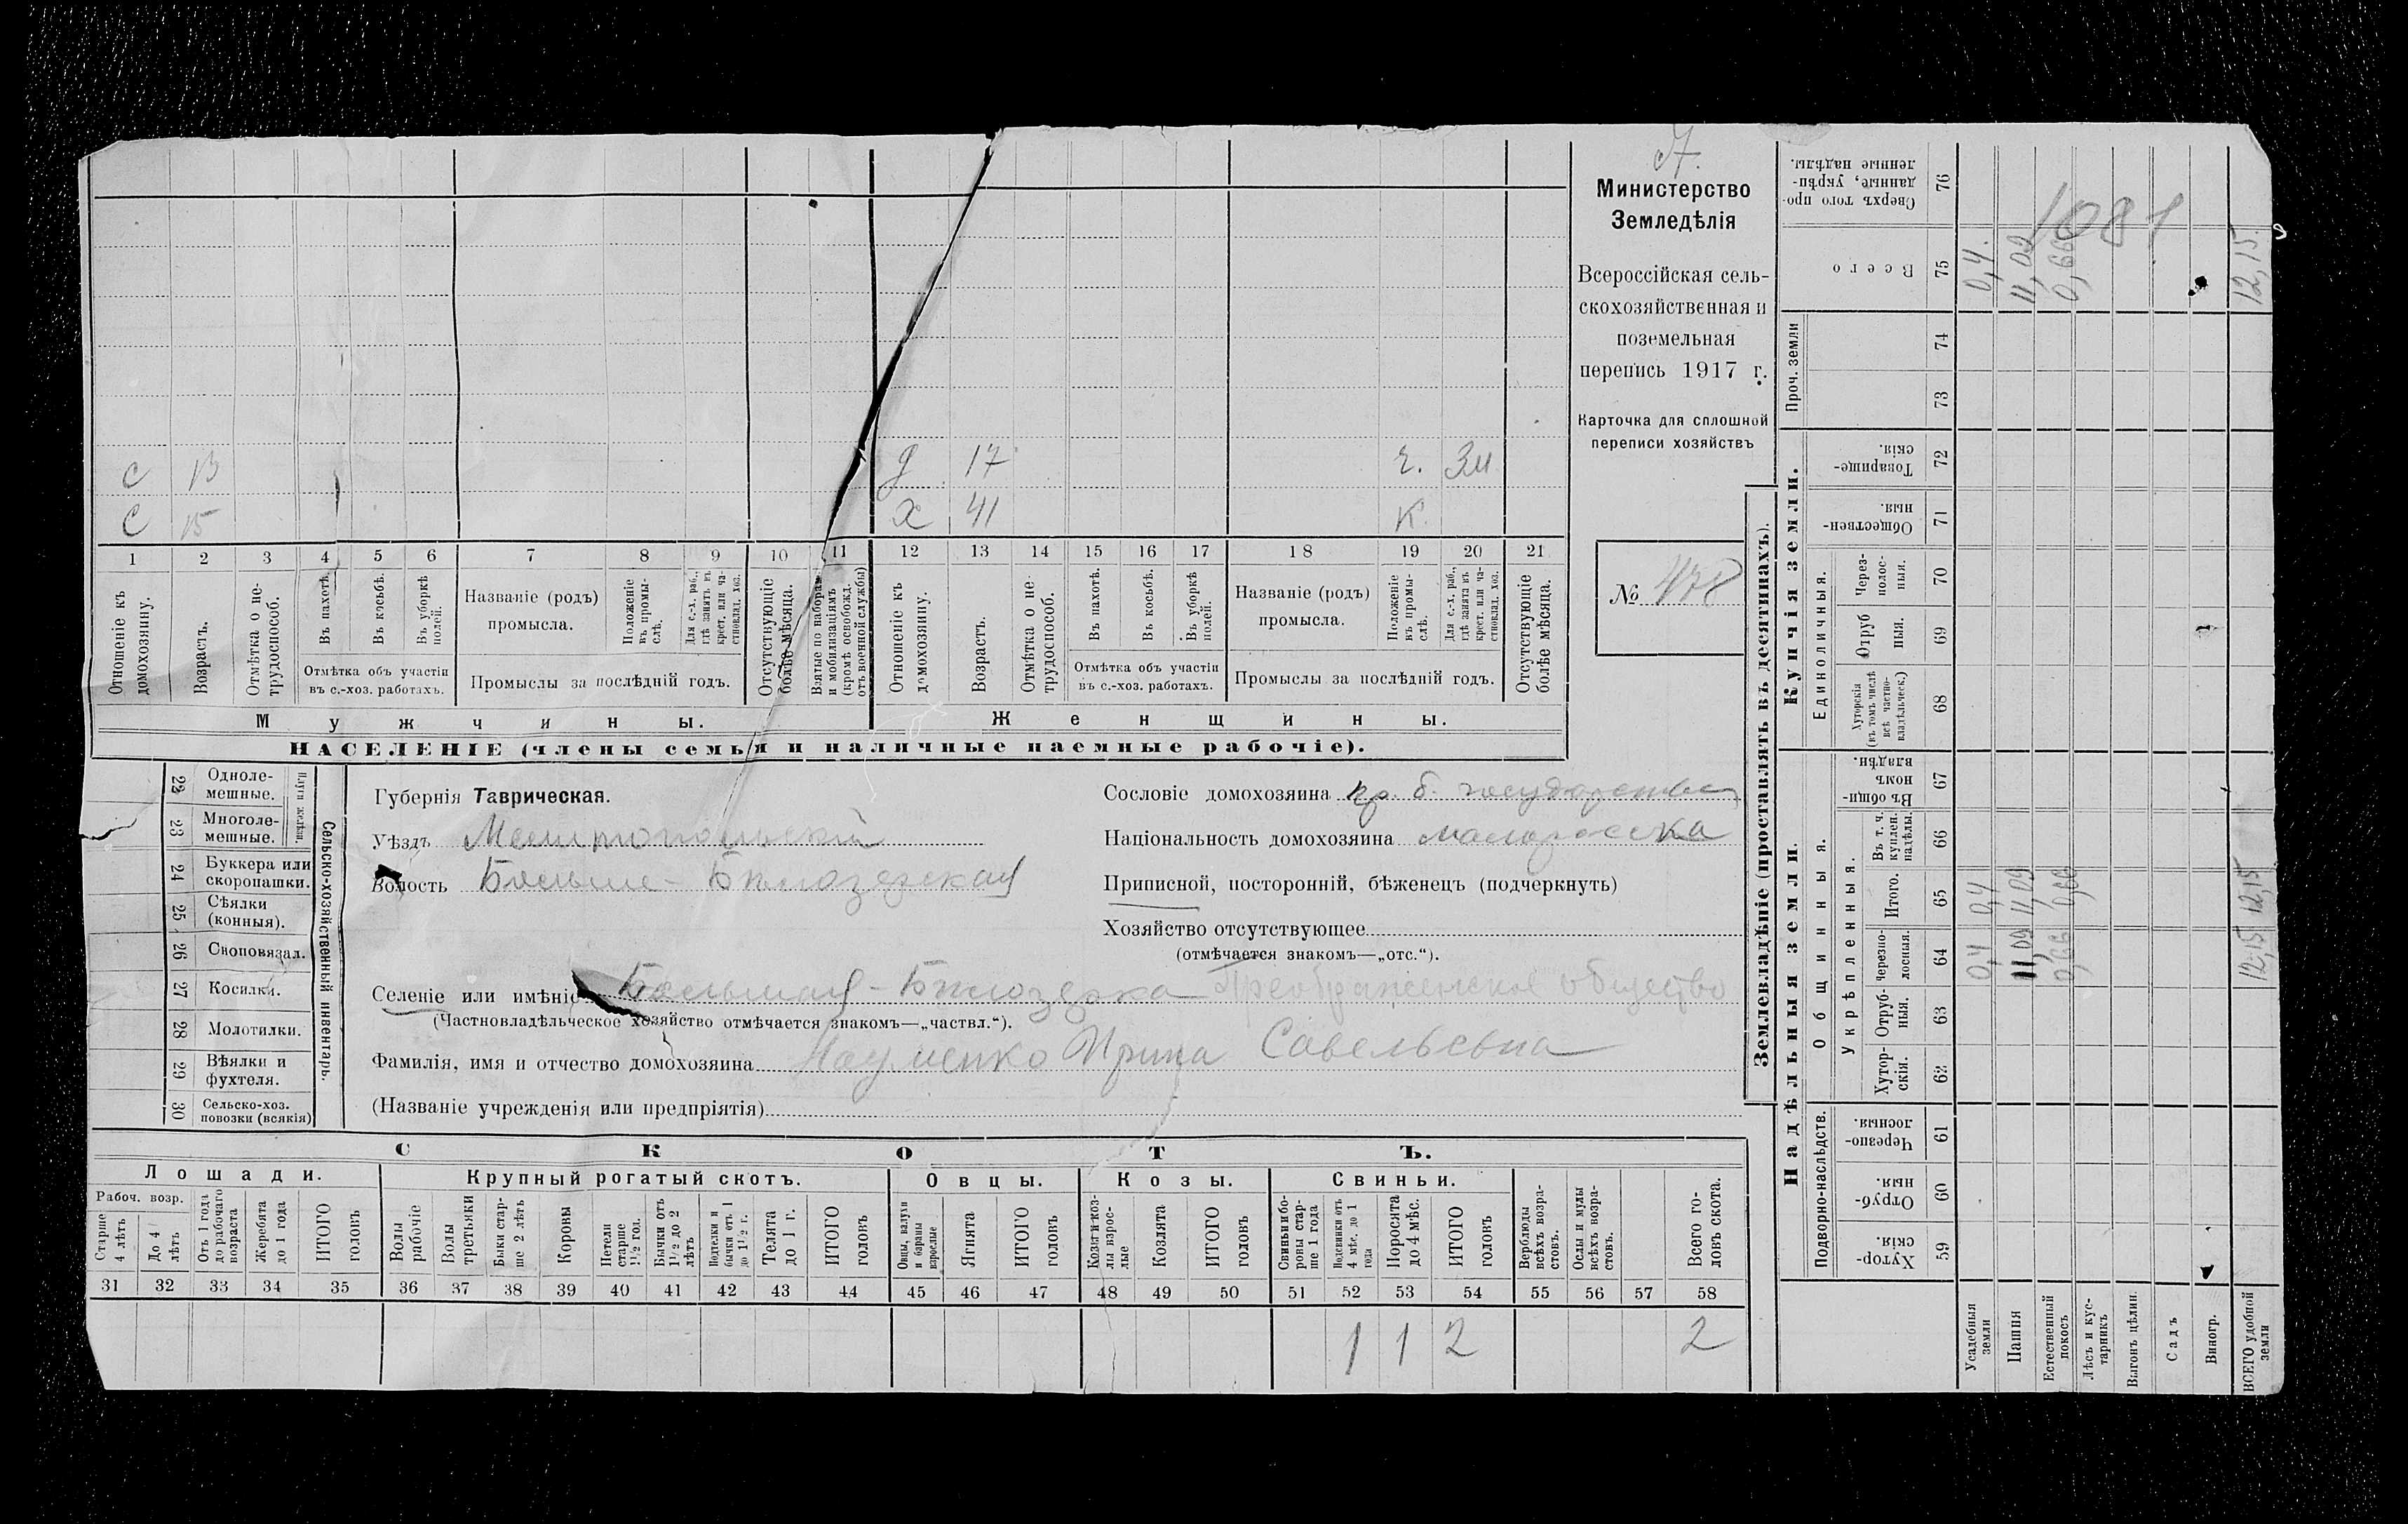 Министерство
Земледѣлія
Всероссійская сель-
скохозяйственная и
поземельная
перепись 1917 г.
Карточка для сплошной
переписи хозяйствъ
№ 478
1081
С 13
д 17 г. Зм
С 15
х 41 к.
1 2 3 4 5 6 7 8 9 10 11 12 13 14 15 16 17 18 19 20 21
Отношеніе къ домохозяину.
Возрастъ.
Отмѣтка о не-трудоспособ.
Въ пахотѣ.
Въ косьбѣ.
Въ уборкѣ полей.
Отмѣтка объ участіи
въ с.-хоз. работахъ.
Названіе (родъ)
промысла.
Положеніе въ промы-слѣ.
Для с.-х. раб., гдѣ занятъ въ крест. или ча-стновлад. хоз.
Промыслы за послѣдній годъ.
Отсутствующіе болѣе мѣсяца.
Взятые по наборамъ и мобилизаціямъ (кромѣ освобожд. отъ военной службы)
Отношеніе къ домохозяину.
Возрастъ.
Отмѣтка о не-трудоспособ.
Въ пахотѣ.
Въ косьбѣ.
Въ уборкѣ полей.
Отмѣтка объ участіи
въ с.-хоз. работахъ.
Названіе (родъ)
промысла.
Положеніе въ промы-слѣ.
Для с.-х. раб., гдѣ занята въ крест. или ча-стновлад. хоз.
Промыслы за послѣдній годъ.
Отсутствующіе болѣе мѣсяца.
Мужчины.
Женщины.
НАСЕЛЕНІЕ (члены семьи и наличные наемные рабочіе).
Сельско-хозяйственный инвентарь.
22 Одноле-мешные.
23 Многоле-мешные.
24 Буккера или скоропашки.
25 Сѣялки (конныя).
26 Сноповязал.
27 Косилки.
28 Молотилки.
29 Вѣялки и фухтеля.
30 Сельско-хоз. повозки (всякія)
Губернія Таврическая.
Уѣздъ Мелитопольскій
Волость Больше-Бѣлозерская
Сословіе домохозяина кр. б. государств
Національность домохозяина малоросска
Приписной, посторонній, бѣженецъ (подчеркнуть)
Хозяйство отсутствующее
(отмѣчается знакомъ—„отс.“).
Селеніе или имѣніе Большая-Бѣлозерка Преображенское общество
(Частновладѣльческое хозяйство отмѣчается знакомъ—„частвл.“).
Фамилія, имя и отчество домохозяина Науменко Ирина Савельевна
(Названіе учрежденія или предпріятія)
СКОТЪ.
Лошади.
Крупный рогатый скотъ.
Овцы.
Козы.
Свиньи.
Рабоч. возр.
Старше 4 лѣтъ
До 4 лѣтъ
Отъ 1 года до рабочаго возраста
Жеребята до 1 года
ИТОГО головъ
Волы рабочіе
Волы третьяки
Быки стар-ше 2 лѣтъ
Коровы
Нетели старше 1½ год.
Бычки отъ 1½ до 2 лѣтъ
Подтелки и бычки отъ 1 до 1½ г.
Телята до 1 г.
ИТОГО головъ
Овцы, валухи и бараны взрослые
Ягнята
ИТОГО головъ
Козы и коз-лы взрос-лые
Козлята
ИТОГО головъ
Свиньи и бо-ровы стар-ше 1 года
Подсвинки отъ 4 мѣс. до 1 года
Поросята до 4 мѣс.
ИТОГО головъ
Верблюды всѣхъ возра-стовъ.
Ослы и мулы всѣхъ возра-стовъ.
Всего го-ловъ скота.
31 32 33 34 35 36 37 38 39 40 41 42 43 44 45 46 47 48 49 50 51 52 53 54 55 56 57 58
1 1 2 2
Землевладѣніе (проставлять въ десятинахъ).
Купчія земли.
Надѣльныя земли.
Сверхъ того про-данные, укрѣп-ленные надѣлы. 76
Всего 75 0,4. 11,09 0,66 12,15
Проч. земли 74
73
Товарище-скія. 72
Обществен-ныя. 71
Единоличныя.
Через-полос-ныя. 70
Отруб ныя. 69
Хуторскія (въ томъ числѣ всѣ частно-владѣльческ.) 68
Общинныя.
Въ общи-номъ владѣн. 67
Укрѣпленныя.
Въ т. ч. куплен. надѣлы. 66
Итого. 65 0,4 11,09 0,66 12,15
Черезпо-лосныя. 64 0,4 11,09 0,66 12,15
Отруб-ныя. 63
Хутор-скія. 62
Подворно-наслѣдств.
Черезпо-лосныя. 61
Отруб-ныя. 60
Хутор-скія. 59
Усадебныя земли
Пашня
Естественный покосъ
Лѣсъ и кус-тарникъ
Выгонъ цѣлин.
Садъ
Виногр.
ВСЕГО удобной земли